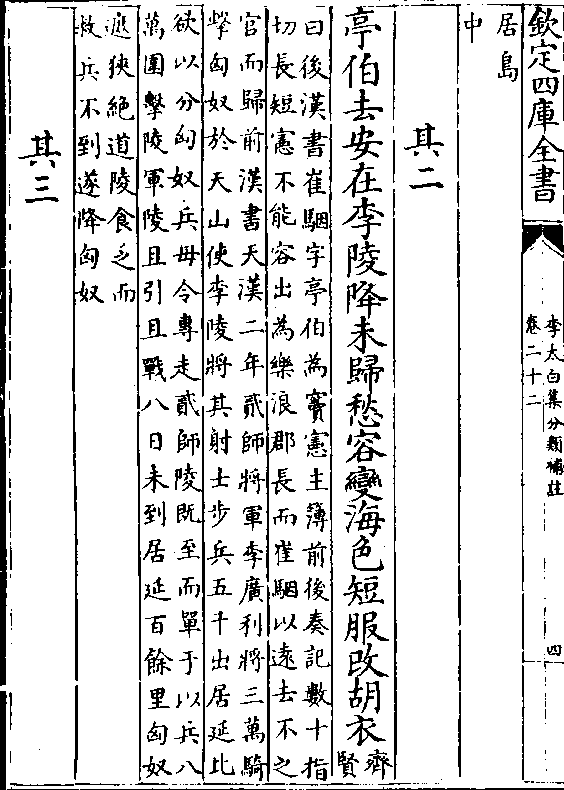 欽定四庫全書
李太白集分類補註
卷二十二
四
居島
中
其二
亭伯去安在李陵降未歸愁容變海色短服改胡衣
齊
賢
曰後漢書崔駰字亭伯為竇憲主簿前後奏記數十指
切長短憲不能容出為樂浪郡長而崔駰以遠去不之
官而歸前漢書天漢二年貳師將軍李廣利將三萬騎
擊匈奴於天山使李陵將其射士步兵五千出居延北
欲以分匈奴兵毋令專走貳師陵既至而單于以兵八
萬圍擊陵軍陵且引且戰八日未到居延百餘里匈奴
遮狹絕道陵食乏而
救兵不到遂降匈奴
其三